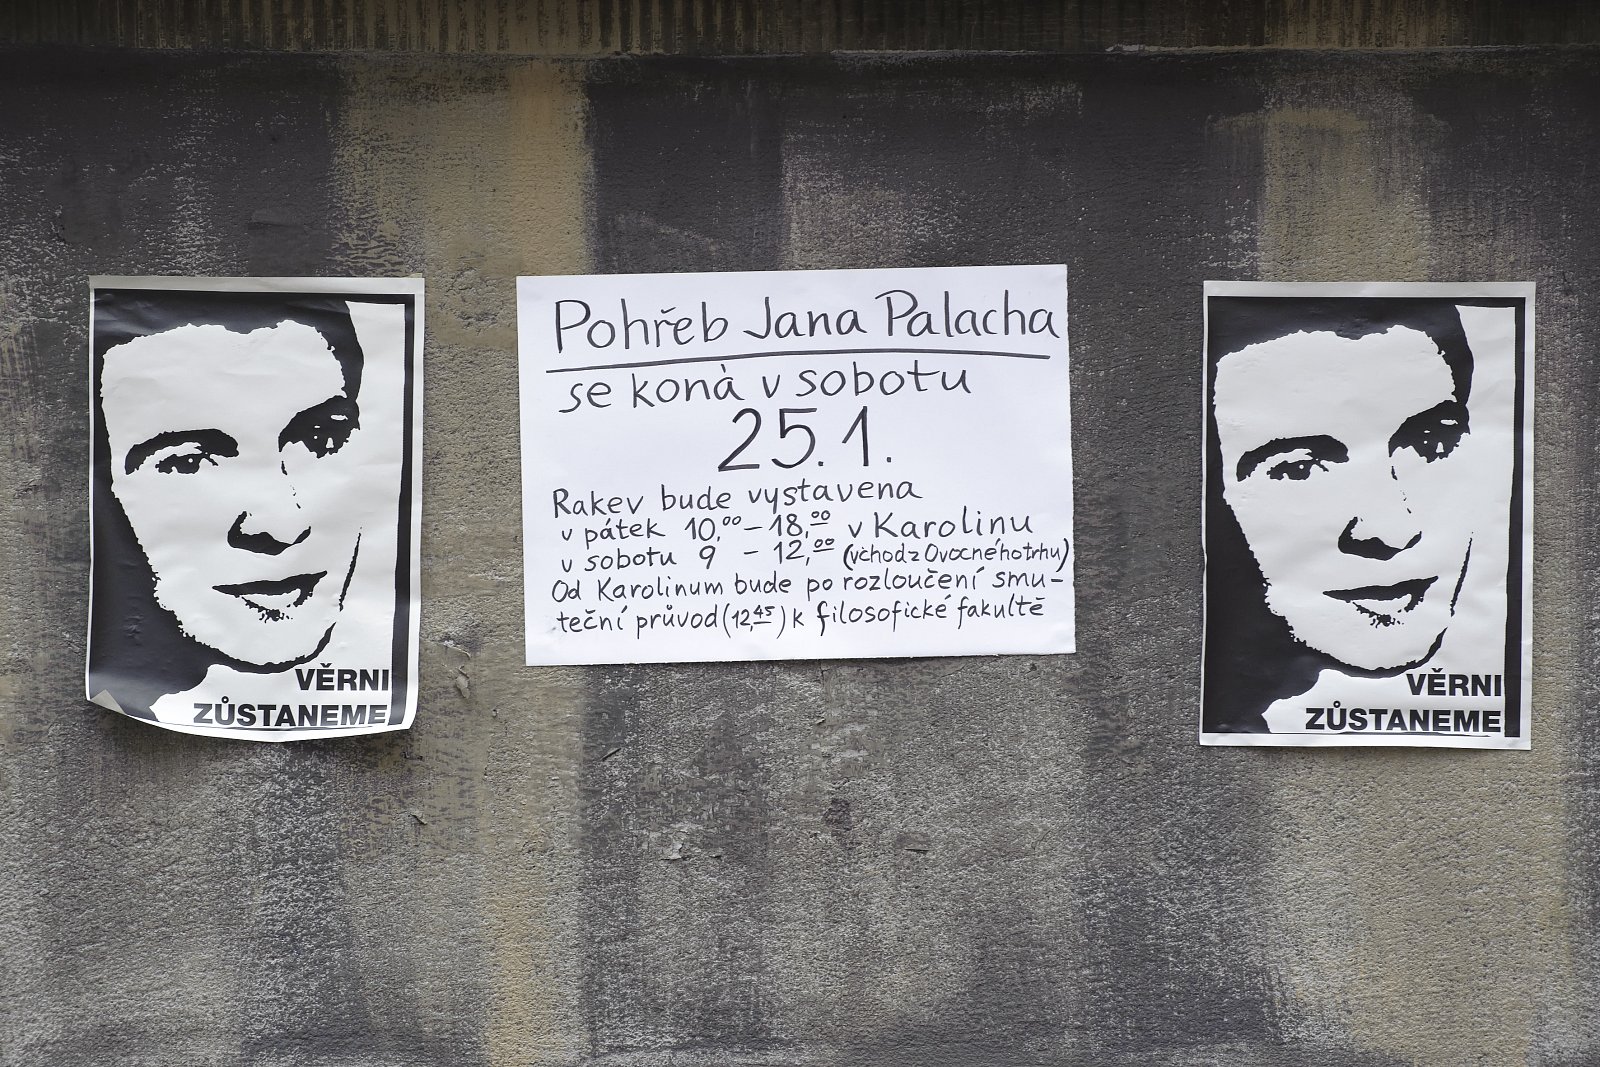 VĚRNI
ZŮSTANEME
Pohřeb Jana Palacha
se koná v sobotu
25.1.
Rakev bude vystavena
v pátek 10,00 – 18,00 v Karolinu
v sobotu 9 – 12,00 (vchod z Ovocného trhu)
Od Karolinum bude po rozloučení smu-
teční průvod (12,45) k filosofické fakultě
VĚRNI
ZŮSTANEME